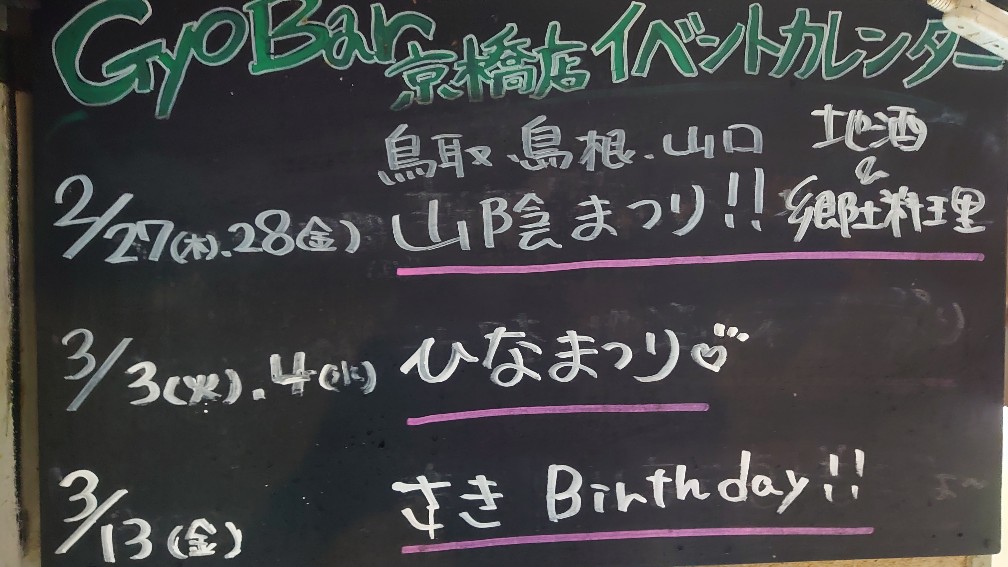 GyoBar 京橋店 イベントカレンダー
鳥取.島根.山口 地酒
&
2/27(木).28(金) 山陰まつり!! 郷土料理
3/3(火).4(水) ひなまつり♡
3/13(金) さき Birthday!!